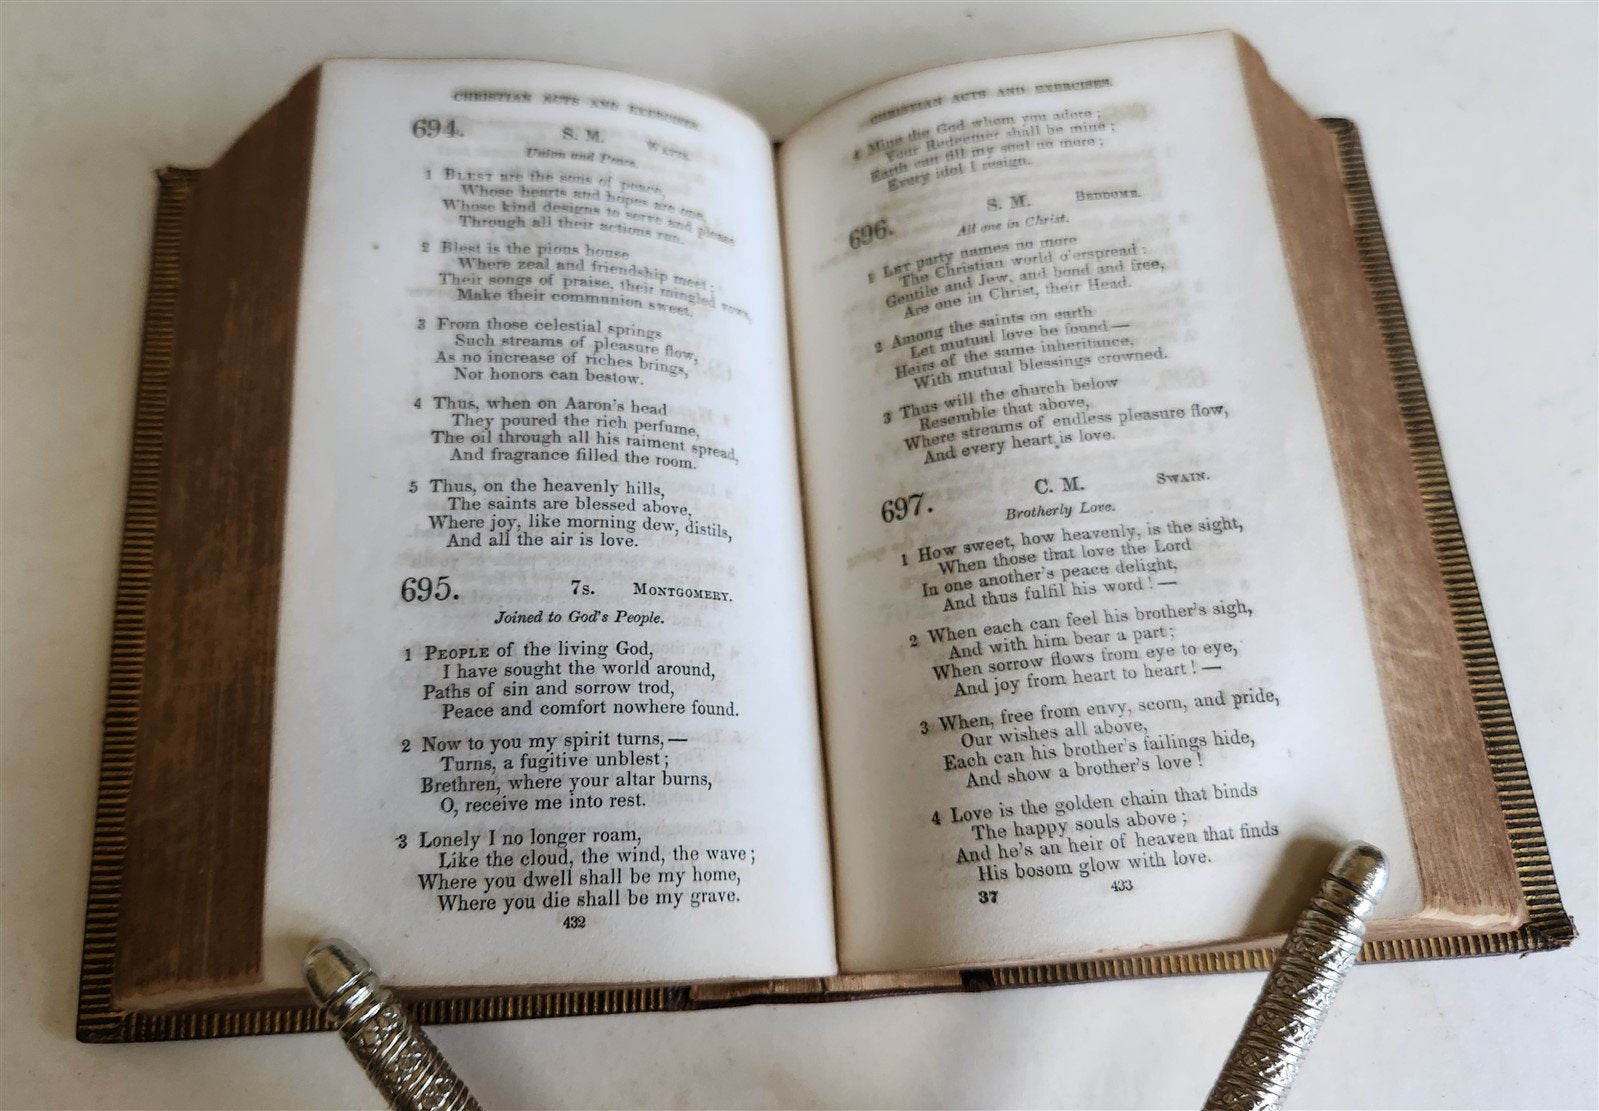 CHRISTIAN ACTS AND EXERCISES.
694. S. M. WATTS.
Union and Peace.
1 BLEST are the sons of peace,
Whose hearts and hopes are one,
Whose kind designs to serve and please
Through all their actions run.
2 Blest is the pious house
Where zeal and friendship meet;
Their songs of praise, their mingled vows,
Make their communion sweet.
3 From those celestial springs
Such streams of pleasure flow,
As no increase of riches brings,
Nor honors can bestow.
4 Thus, when on Aaron's head
They poured the rich perfume,
The oil through all his raiment spread,
And fragrance filled the room.
5 Thus, on the heavenly hills,
The saints are blessed above,
Where joy, like morning dew, distils,
And all the air is love.
695. 7s. MONTGOMERY.
Joined to God's People.
1 PEOPLE of the living God,
I have sought the world around,
Paths of sin and sorrow trod,
Peace and comfort nowhere found.
2 Now to you my spirit turns,—
Turns, a fugitive unblest;
Brethren, where your altar burns,
O, receive me into rest.
3 Lonely I no longer roam,
Like the cloud, the wind, the wave;
Where you dwell shall be my home,
Where you die shall be my grave.
432
CHRISTIAN ACTS AND EXERCISES.
4 Mine the God whom you adore;
Your Redeemer shall be mine;
Earth can fill my soul no more;
Every idol I resign.
696. S. M. BEDDOME.
All one in Christ.
1 LET party names no more
The Christian world o'erspread:
Gentile and Jew, and bond and free,
Are one in Christ, their Head.
2 Among the saints on earth
Let mutual love be found—
Heirs of the same inheritance,
With mutual blessings crowned.
3 Thus will the church below
Resemble that above,
Where streams of endless pleasure flow,
And every heart is love.
697. C. M. SWAIN.
Brotherly Love.
1 How sweet, how heavenly, is the sight,
When those that love the Lord
In one another's peace delight,
And thus fulfil his word!—
2 When each can feel his brother's sigh,
And with him bear a part;
When sorrow flows from eye to eye,
And joy from heart to heart!—
3 When, free from envy, scorn, and pride,
Our wishes all above,
Each can his brother's failings hide,
And show a brother's love!
4 Love is the golden chain that binds
The happy souls above;
And he's an heir of heaven that finds
His bosom glow with love.
37 433